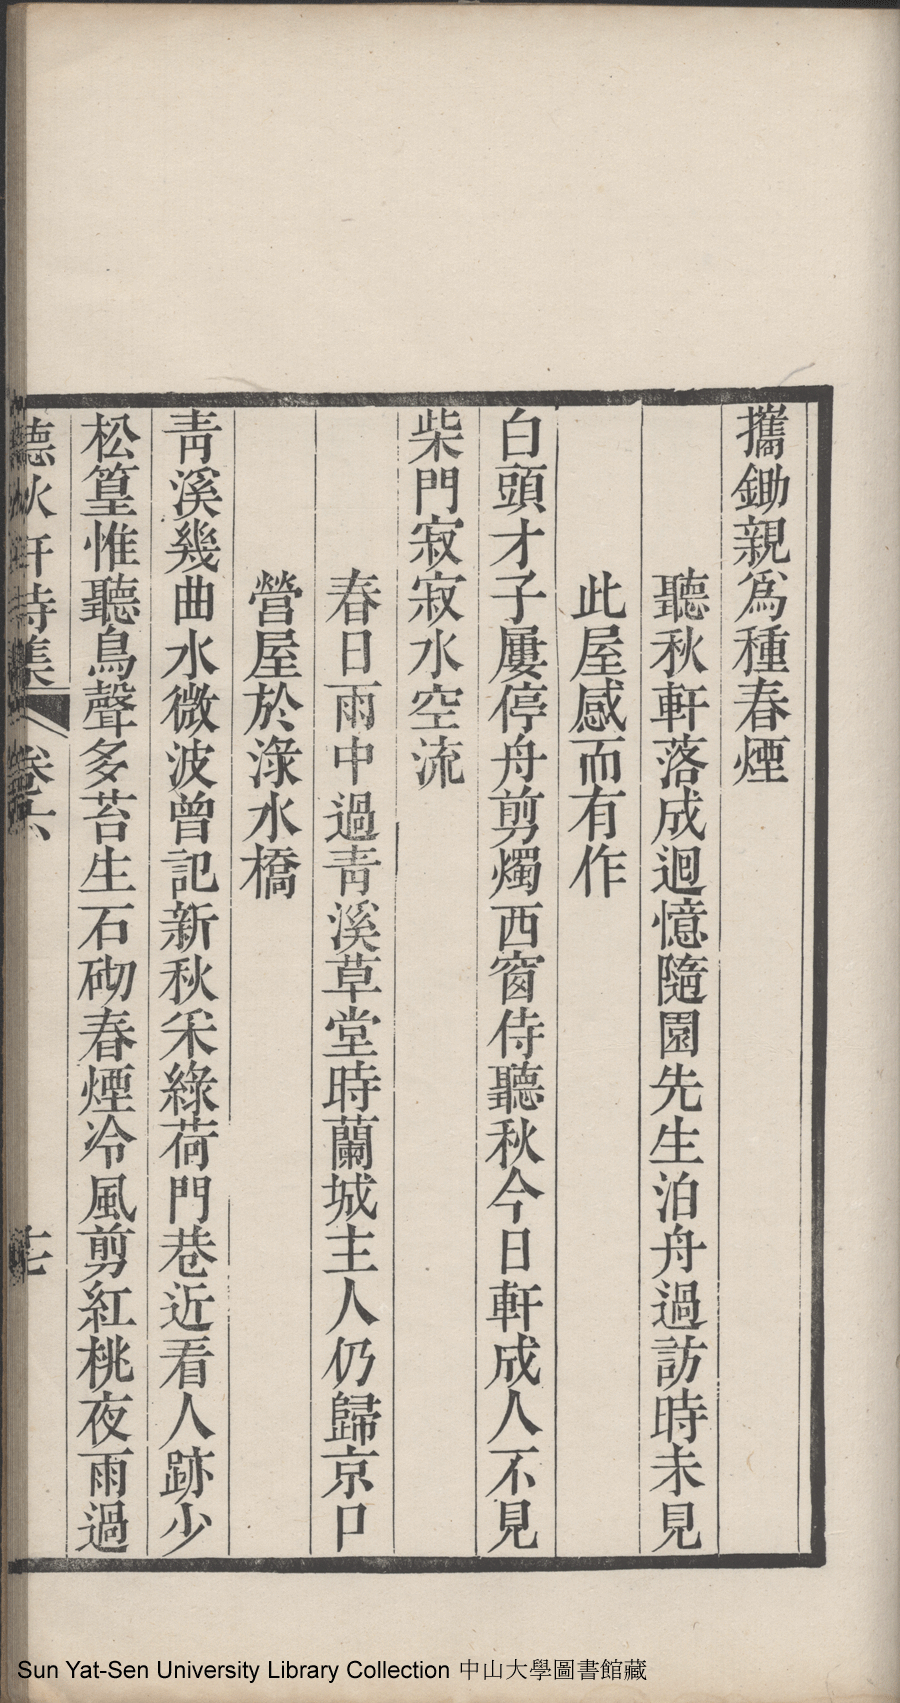 攜鋤親爲種春煙
聽秋軒落成迴憶隨園先生泊舟過訪時未見
此屋感而有作
白頭才子屢停舟剪燭西窗侍聽秋今日軒成人不見
柴門寂寂水空流
春日雨中過靑溪草堂時蘭城主人仍歸京口
營屋於淥水橋
靑溪幾曲水微波曾記新秋采綠荷門巷近看人跡少
松篁惟聽鳥聲多苔生石砌春煙冷風剪紅桃夜雨過
聽秋軒詩集 卷六 十七
Sun Yat-Sen University Library Collection 中山大學圖書館藏